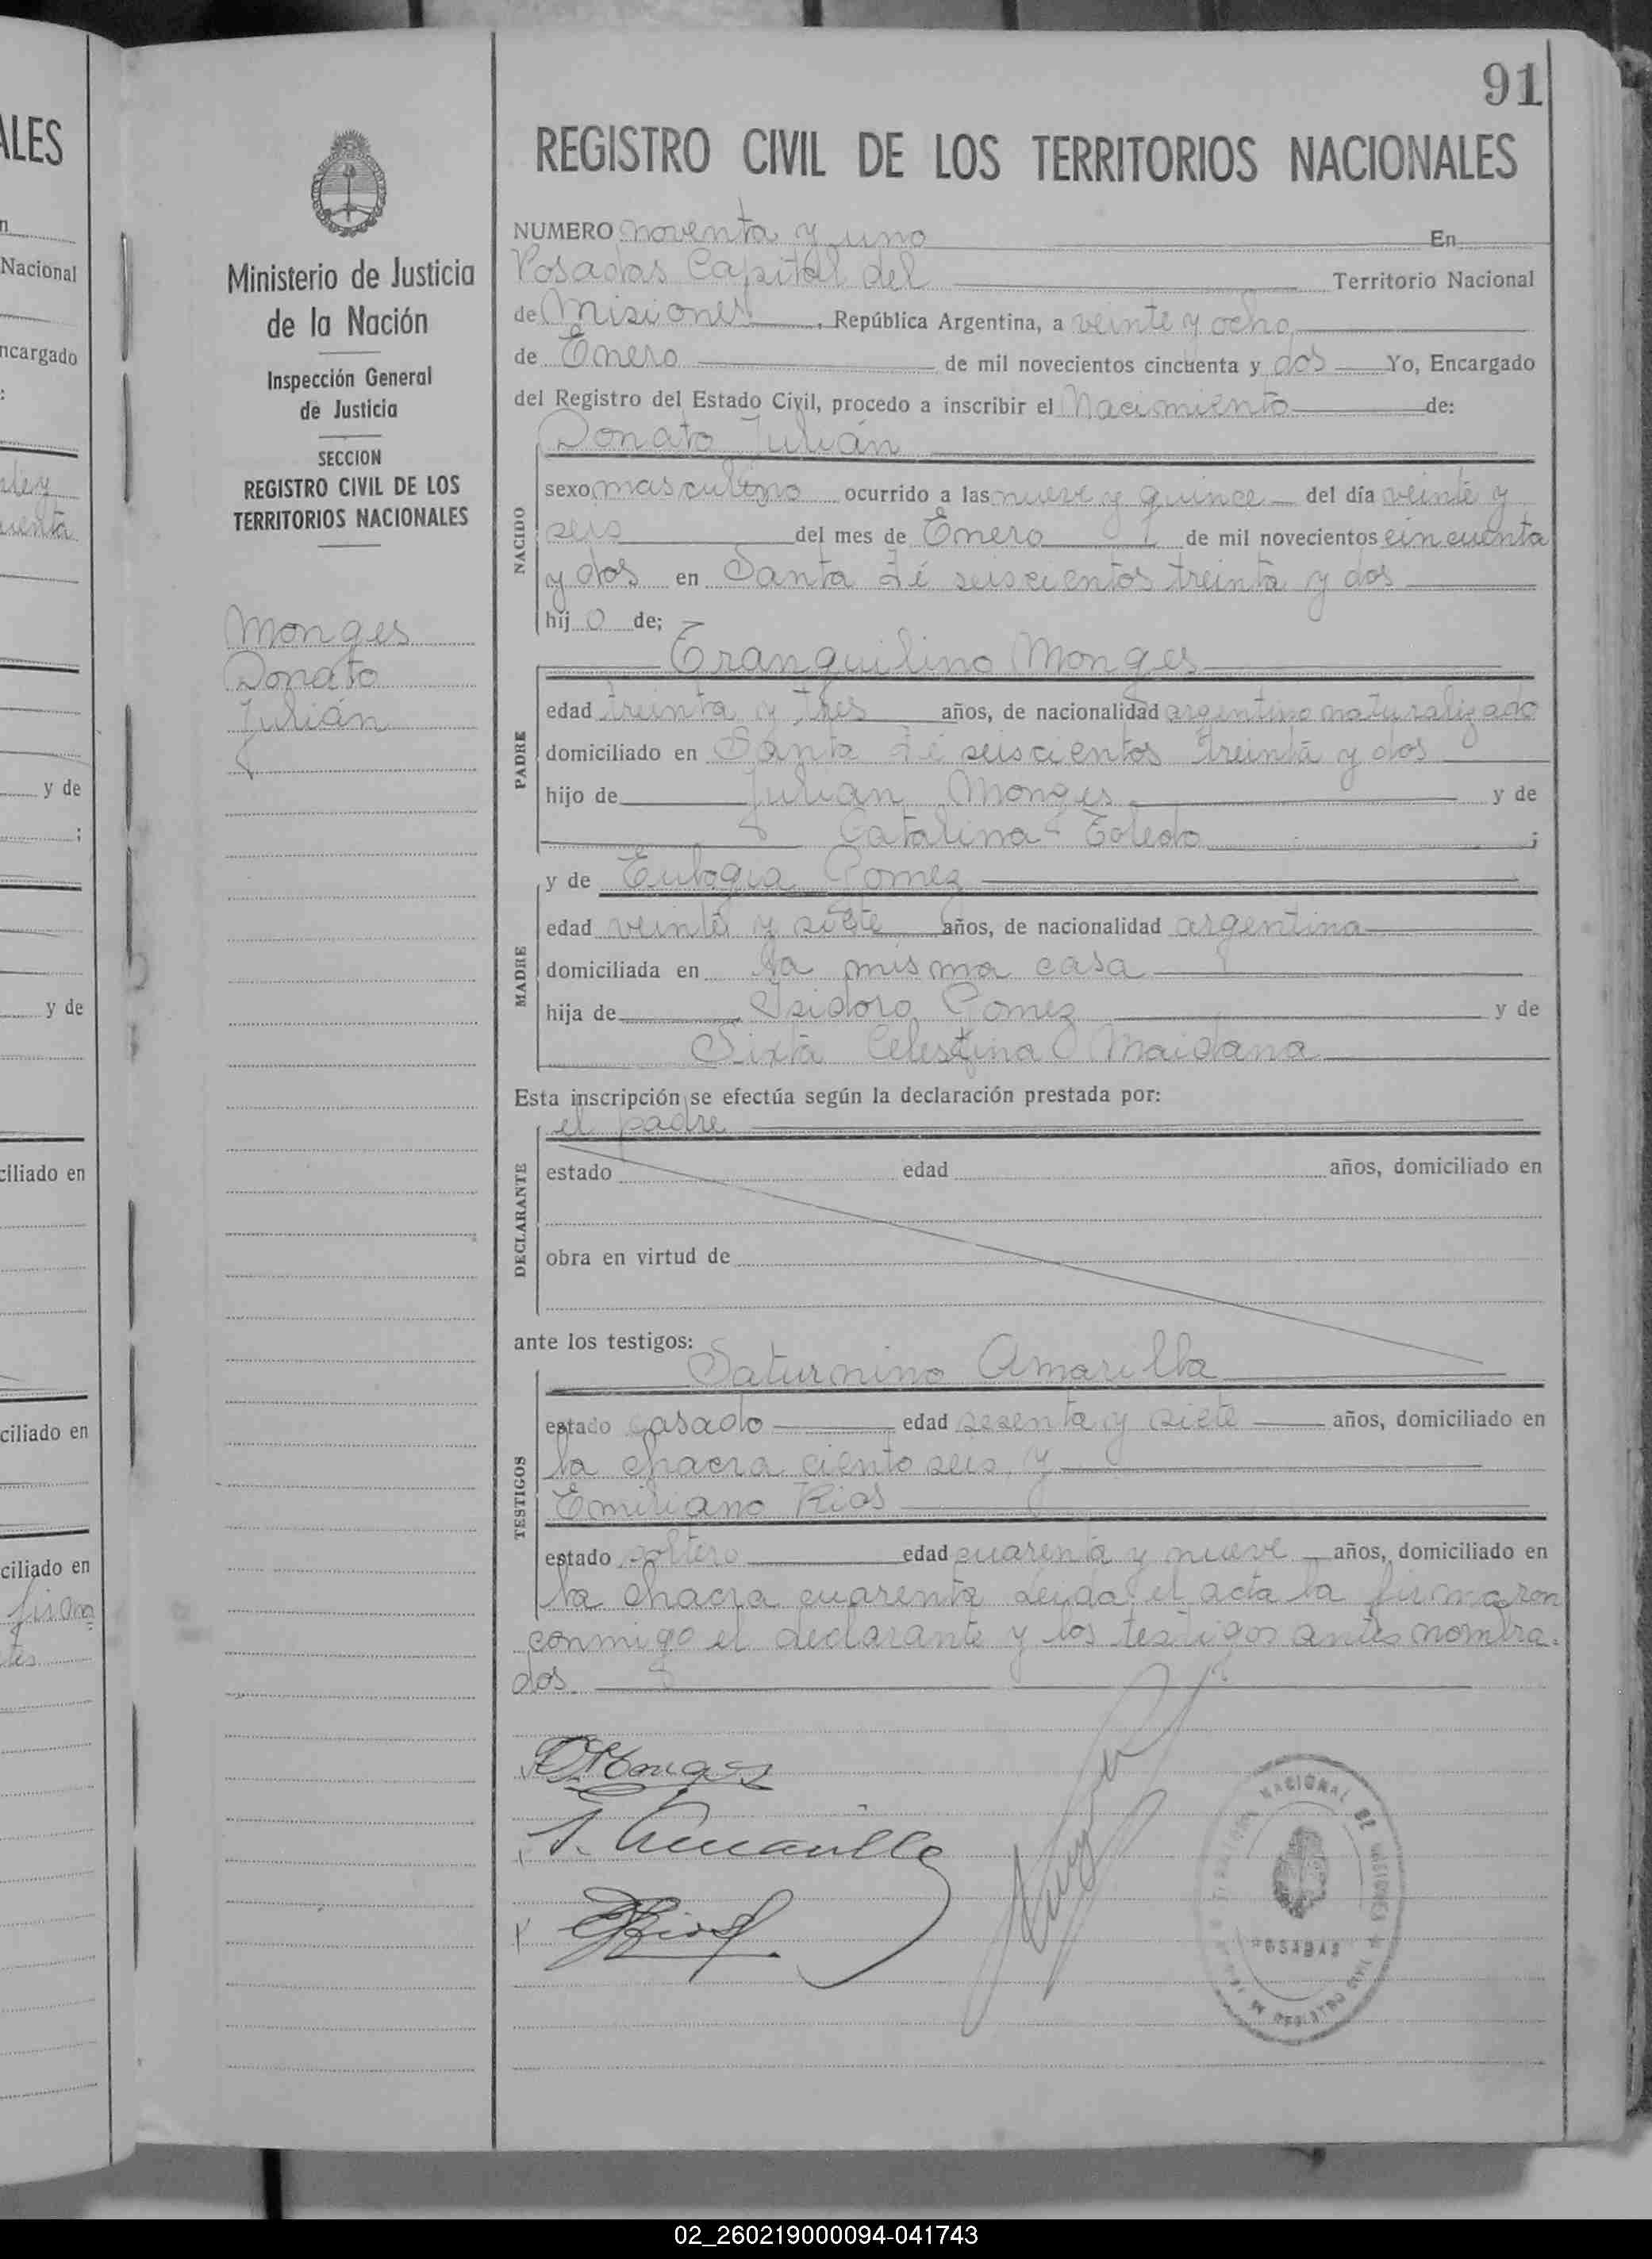 91
ALES
REGISTRO CIVIL DE LOS TERRITORIOS NACIONALES
Ministerio de Justicia
de la Nación
Inspección General
de Justicia
SECCION
REGISTRO CIVIL DE LOS
TERRITORIOS NACIONALES
Monges
Donato
Julián
NUMERO noventa y uno En
Posadas Capital del Territorio Nacional
de Misiones, República Argentina, a veinte y ocho
de Enero de mil novecientos cincuenta y dos Yo, Encargado
del Registro del Estado Civil, procedo a inscribir el Nacimiento de:
Donato Julián
NACIDO
sexo masculino ocurrido a las nueve y quince del día veinte y
seis del mes de Enero de mil novecientos cincuenta
y dos en Santa Fé seiscientos treinta y dos
hij o de;
Tranquilino Monges
PADRE
edad treinta y tres años, de nacionalidad argentino naturalizado
domiciliado en Santa Fé seiscientos treinta y dos
hijo de Julian Monges y de
Catalina Toledo ;
y de Eulogia Gomez
MADRE
edad veinte y siete años, de nacionalidad argentina
domiciliada en la misma casa
hija de Isidoro Gomez y de
Sixta Celestina Maidana
Esta inscripción se efectúa según la declaración prestada por:
el padre
DECLARANTE
estado edad años, domiciliado en
obra en virtud de
ante los testigos:
Saturnino Amarilla
TESTIGOS
estado casado edad sesenta y siete años, domiciliado en
la chacra ciento seis, y
Emiliano Rios
estado soltero edad cuarenta y nueve años, domiciliado en
la chacra cuarenta Leida el acta la firmaron
conmigo el declarante y los testigos antes nombra-
dos.
T. Monges
S. Amarilla
E. Rios
NACIONAL DE MISIONES
POSADAS
REGISTRO CIVIL
Nacional
ncargado
y de
;
y de
ciliado en
ciliado en
ciliado en
02_260219000094-041743